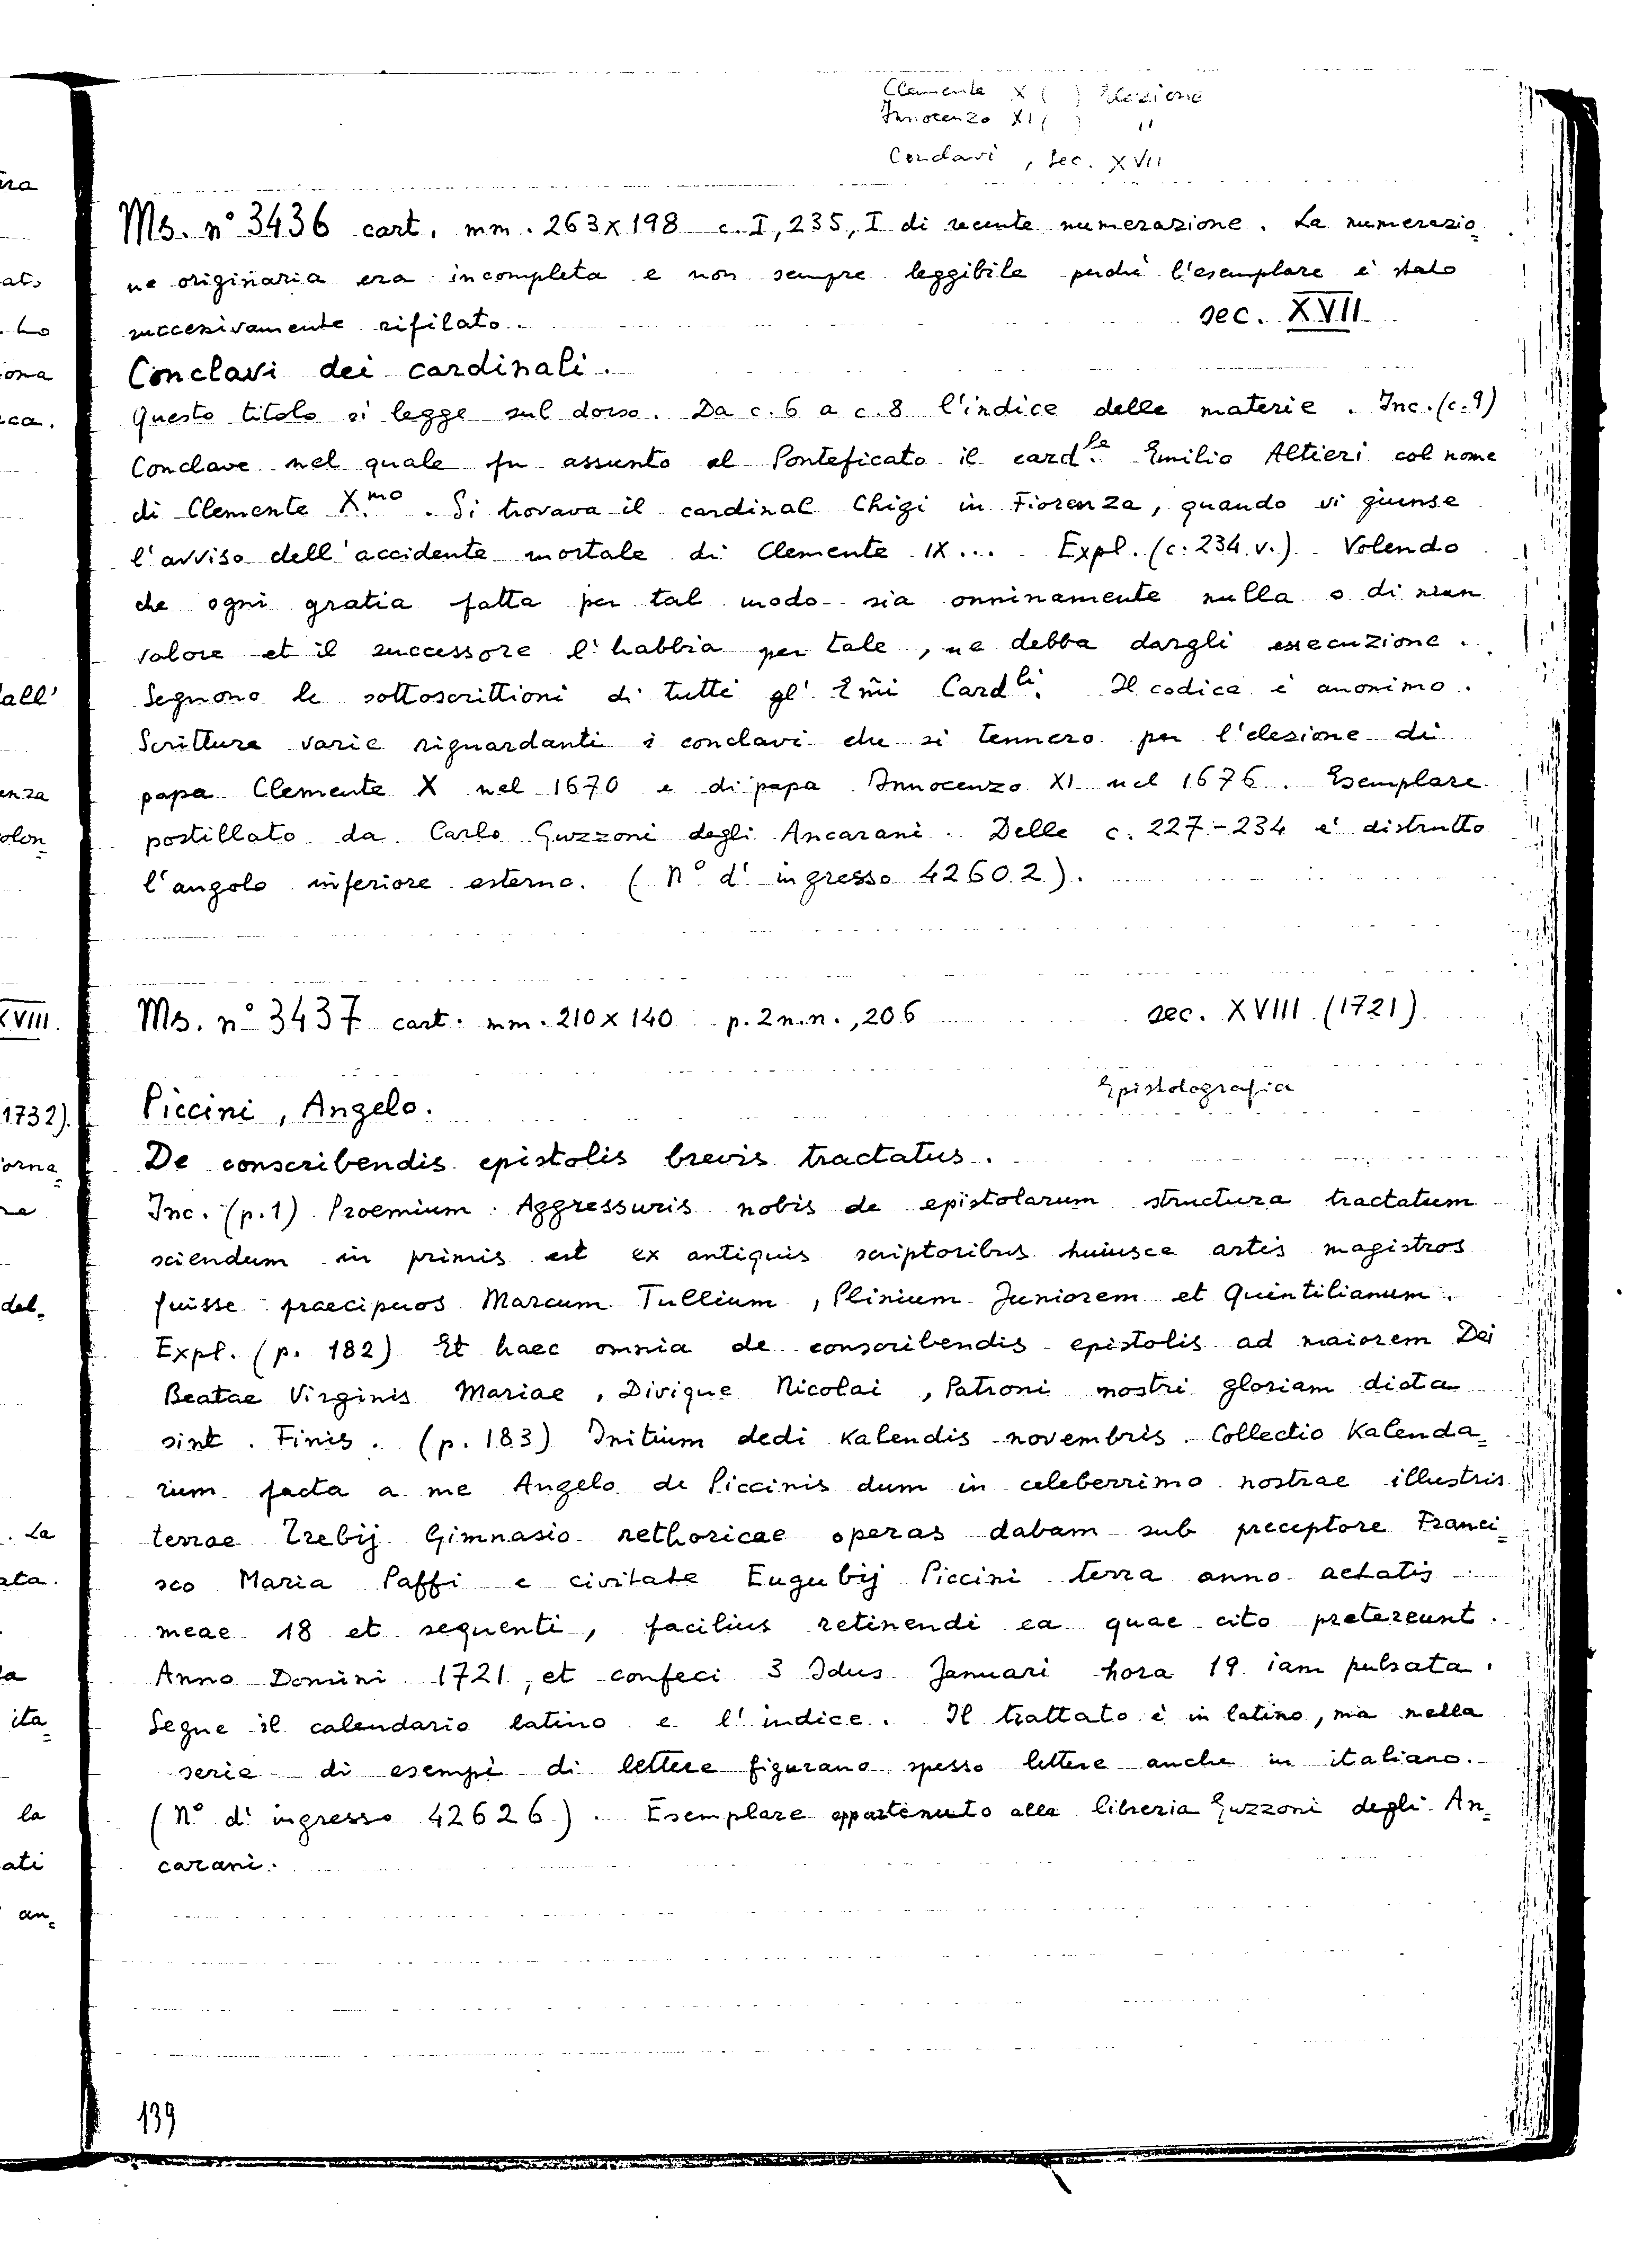 Clemente X ( ) Elezione
Innocenzo XI ( ) "
Conclavi, sec. XVII
Ms. n° 3436 cart. mm. 263x198 c. I, 235, I di recente numerazione. La numerazio=
ne originaria era incompleta e non sempre leggibile perchè l'esemplare è stato
successivamente rifilato. sec. XVII
Conclavi dei cardinali.
Questo titolo si legge sul dorso. Da c. 6 a c. 8 l'indice delle materie. Inc. (c. 9)
Conclave nel quale fu assunto al Ponteficato il card.le Emilio Altieri col nome
di Clemente X.mo. Si trovava il cardinal Chigi in Fiorenza, quando vi giunse
l'avviso dell'accidente mortale di Clemente IX... Expl. (c. 234 v.) Volendo
che ogni gratia fatta per tal modo sia onninamente nulla o di niun
valore et il successore l'habbia per tale, ne debba dargli essecuzione.
Seguono le sottoscrittioni di tutti gl' Emi Card.li. Il codice è anonimo.
Scritture varie riguardanti i conclavi che si tennero per l'elezione di
papa Clemente X nel 1670 e di papa Innocenzo XI nel 1676. Esemplare
postillato da Carlo Guzzoni degli Ancarani. Delle c. 227-234 è distrutto
l'angolo inferiore esterno. (N° d'ingresso 42602).
Ms. n° 3437 cart. mm. 210x140 p. 2 n.n., 206 sec. XVIII (1721)
Epistolografia
Piccini, Angelo.
De conscribendis epistolis brevis tractatus.
Inc. (p. 1) Proemium. Aggressuris nobis de epistolarum structura tractatum
sciendum in primis est ex antiquis scriptoribus huiusce artis magistros
fuisse praecipuos Marcum Tullium, Plinium Juniorem et Quintilianum.
Expl. (p. 182) Et haec omnia de conscribendis epistolis ad maiorem Dei
Beatae Virginis Mariae, Divique Nicolai, Patroni nostri gloriam dicta
sint. Finis. (p. 183) Initium dedi Kalendis novembris. Collectio Kalenda=
rium facta a me Angelo de Piccinis dum in celeberrimo nostrae illustris
terrae Trebij Gimnasio rethoricae operas dabam sub preceptore Franci=
sco Maria Paffi e civitate Eugubij Piccini terra anno aetatis
meae 18 et sequenti, facilius retinendi ea quae cito pretereunt.
Anno Domini 1721, et confeci 3 Idus Januari hora 19 iam pulsata.
Segue il calendario latino e l'indice. Il trattato è in latino, ma nella
serie di esempi di lettere figurano spesso lettere anche in italiano.
(N° d'ingresso 42626). Esemplare appartenuto alla libreria Guzzoni degli An=
carani.
139